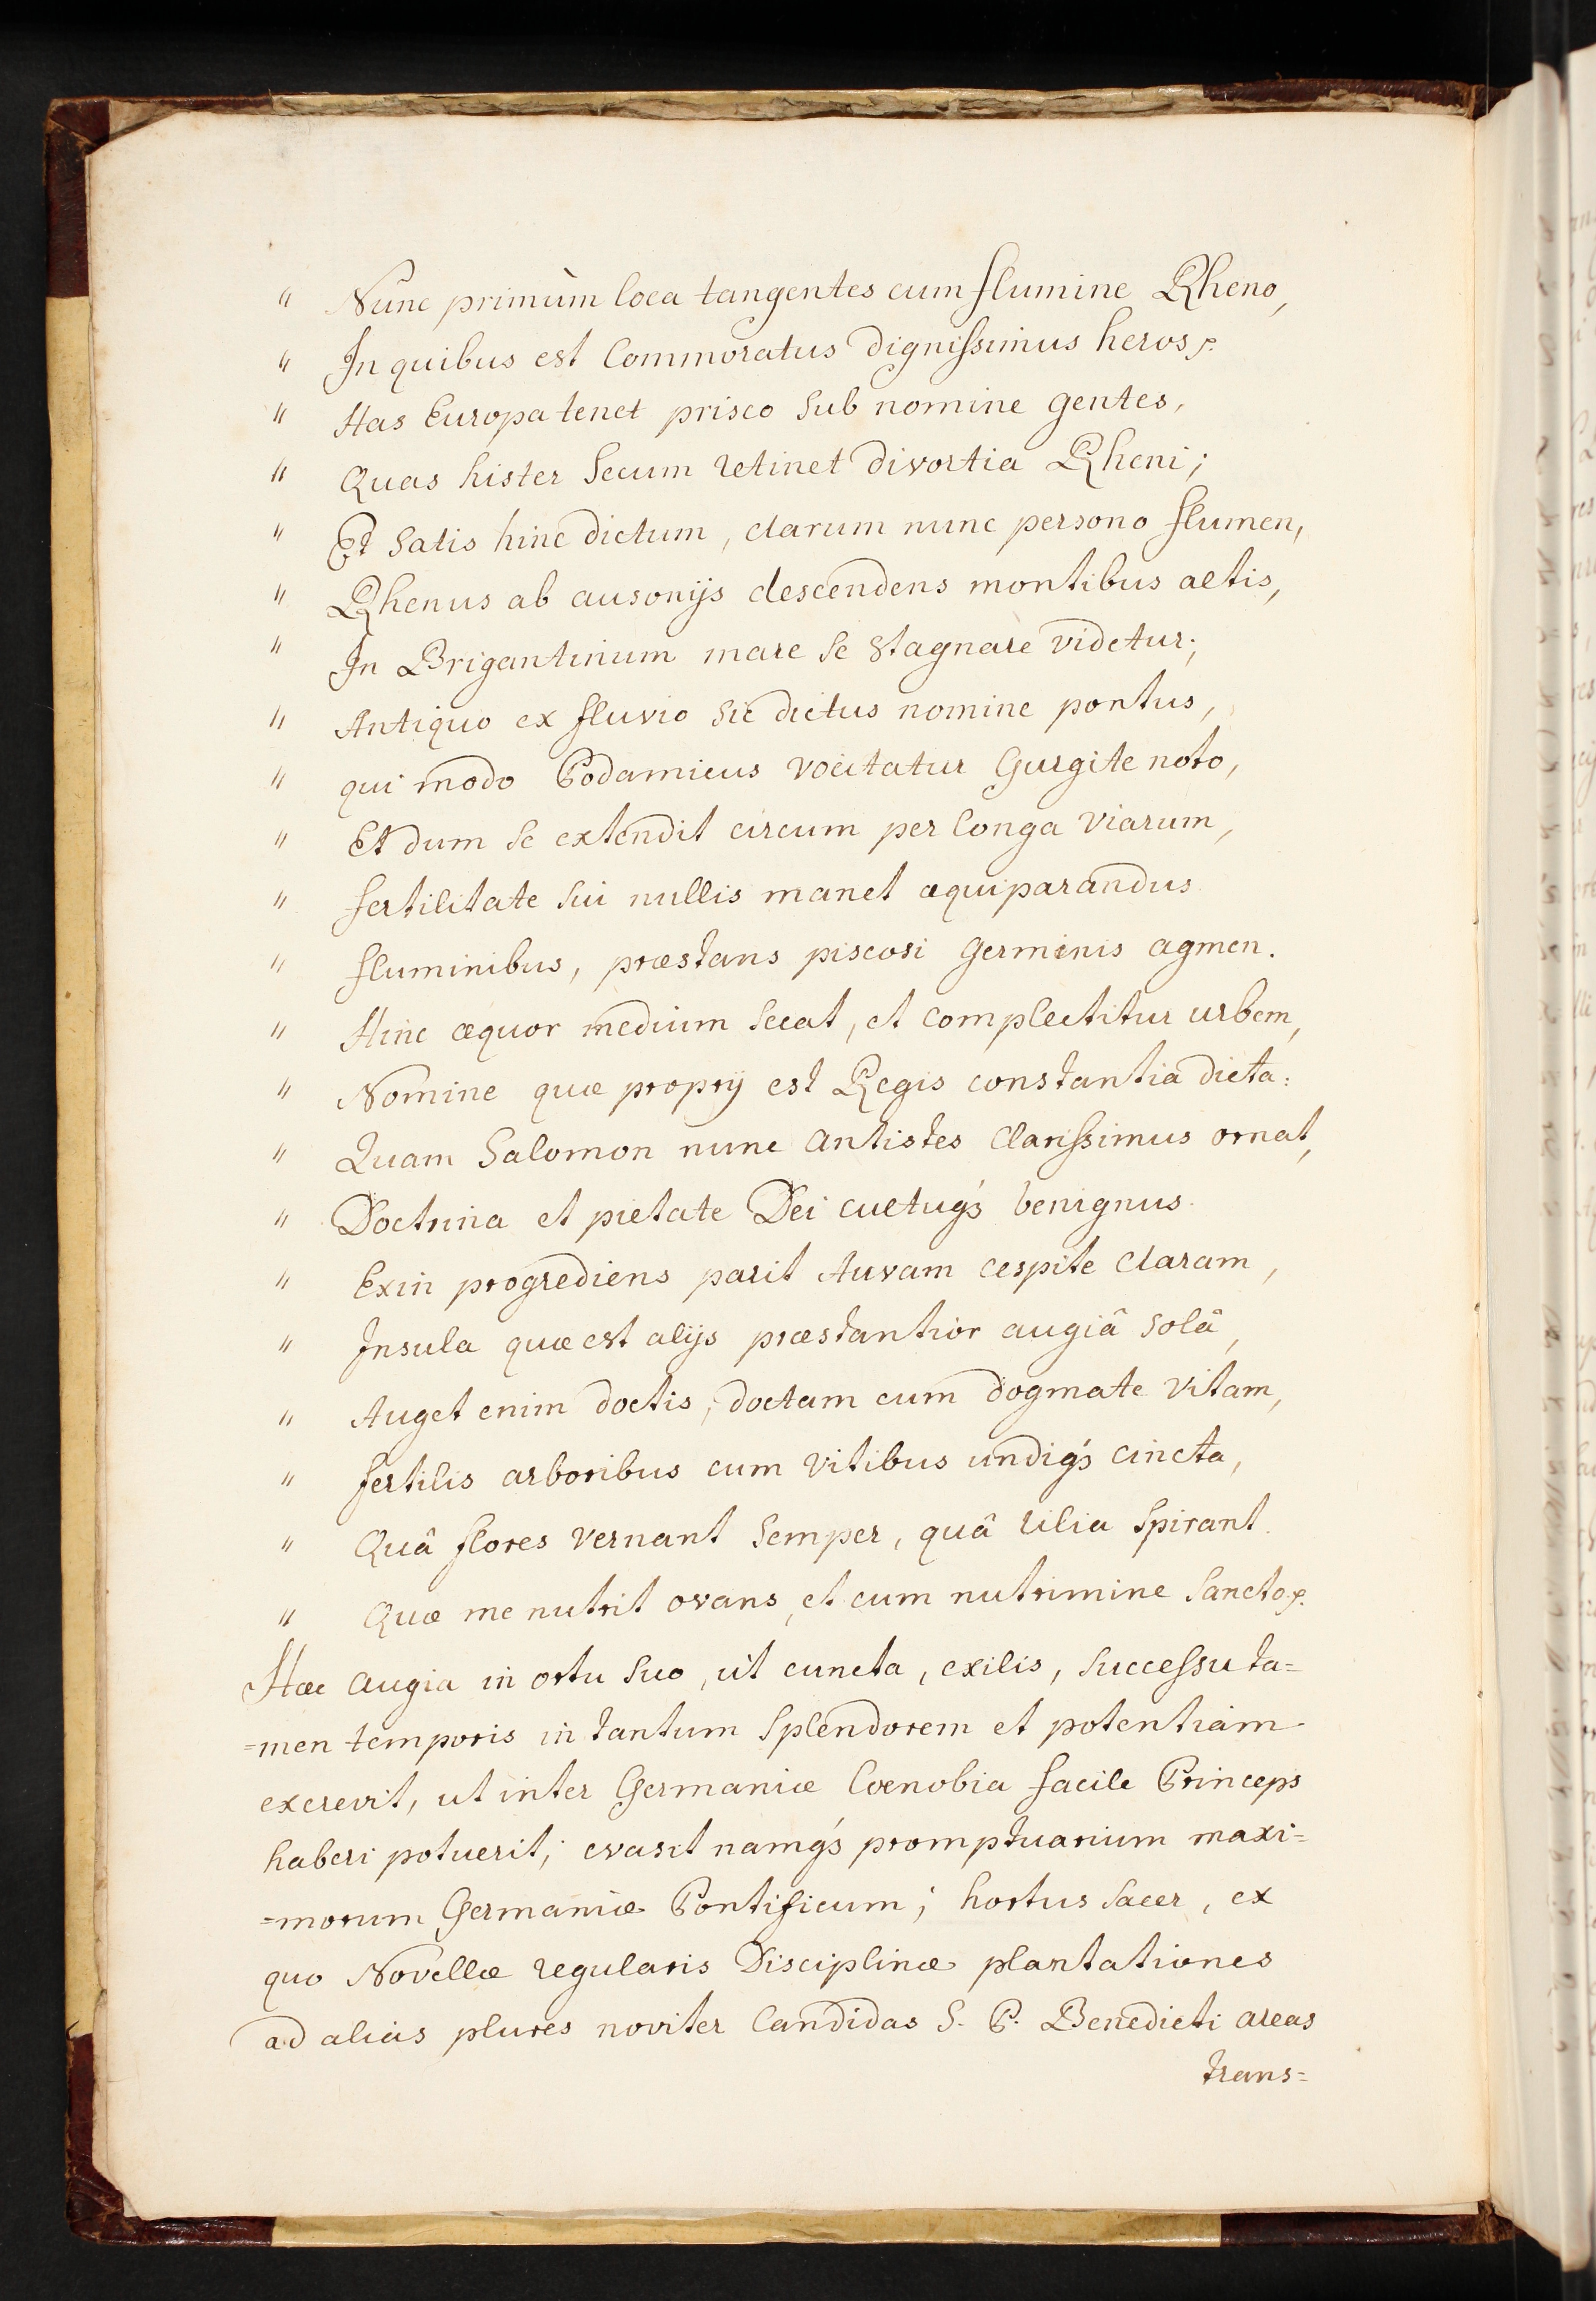 " Nunc primùm loca tangentes cum flumine Rheno,
" In quibus est Commoratus dignissimus heros p.
" Has Europa tenet prisco sub nomine gentes,
" Quas hister secum retinet divortia Rheni;
" Et satis hinc dictum, clarum nunc persono flumen,
" Rhenus ab ausonijs descendens montibus altis,
" In Brigantinum mare se stagnare videtur;
" Antiquo ex fluvio sic dictus nomine pontus,
" qui modo Podamicus vocitatur Gurgite noto,
" Et dum se extendit circum per longa viarum,
" fertilitate sui nullis manet æquiparandus
" fluminibus, præstans piscosi germinis agmen.
" Hinc æquor medium secat, et complectitur urbem,
" Nomine quæ proprij est Regis constantia dicta:
" Quam Salomon nunc antistes Clarissimus ornat,
" Doctrina et pietate Dei cultuqs benignus.
" Exin progrediens parit Auvam cespite claram,
" Insula quæ est alijs præstantior augiâ solâ,
" Auget enim doctis, doctam cum dogmate vitam,
" fertilis arboribus cum vitibus undiqs cincta,
" Quâ flores vernant semper, quâ lilia spirant.
" Quæ me nutrit ovans, et cum nutrimine sancto p.
Hæc augia in ortu suo, ut cuncta, exilis, successu ta=
=men temporis in tantum splendorem et potentiam
excrevit, ut inter Germaniæ Cœnobia facile Princeps
haberi potuerit; evasit namqs promptuarium maxi=
=morum Germaniæ Pontificum; hortus sacer, ex
quo Novellæ regularis Disciplinæ plantationes
ad alias plures noviter Candidas S. P. Benedicti areas
trans=